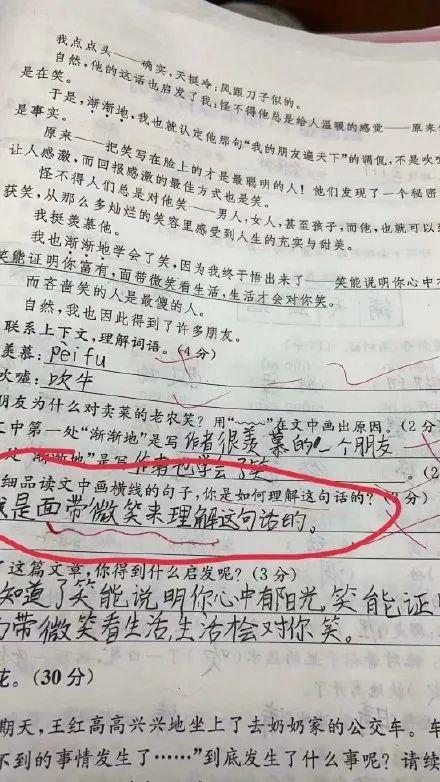 我点点头——确实,天挺冷,风跟刀子似的。
自然,他的这话也启发了我:怪不得他总是给人温暖的感觉——原来
是在笑。
于是,渐渐地,我也就认定他那句“我的朋友遍天下”的调侃,不是吹
是事实。
原来——把笑写在脸上的才是最聪明的人!他们发现了一个秘密
让人感激,而回报感激的最佳方式也是笑。
怪不得人们总是对他笑——男人,女人,甚至孩子,而他,也就可以
获笑,从那么多灿烂的笑容里感受到人生的充实与甜美。
我挺羡慕他。
我也渐渐地学会了笑,因为我终于悟出来了——笑能说明你心中
笑能证明你富有,面带微笑看生活,生活才会对你笑。
而吝啬笑的人是最傻的人。
自然,我也因此得到了许多朋友。
联系上下文,理解词语。(4分)
羡慕:pèifu
吹嘘:吹牛
朋友为什么对卖菜的老农笑?用“~~~”在文中画出原因。(2分
文中第一处“渐渐地”是写作者很羡慕的一个朋友
处“渐渐地”是写作者也学会了笑。(2
细品读文中画横线的句子,你是如何理解这句话的?(3分)
是面带微笑来理解这句话的。
了这篇文章,你得到什么启发呢?(3分)
知道了笑能说明你心中有阳光,笑能证
带微笑看生活,生活桧对你笑。
花。(30分)
期天,王红高高兴兴地坐上了去奶奶家的公交车。车
不到的事情发生了……”到底发生了什么事呢?请续